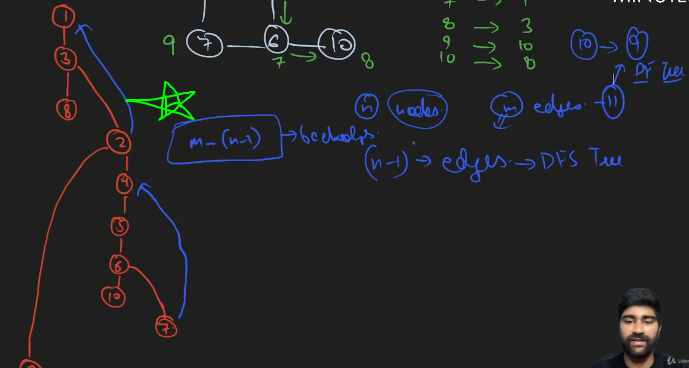 MINUTE
1
3
8
2
4
5
6
10
7
9 7 6 10 8
7 →
8 → 3
9 → 10
10 → 8
10 → 9
DF Tree
n nodes. m edges → 11
m - (n-1) → backedges.
(n-1) → edges → DFS Tree